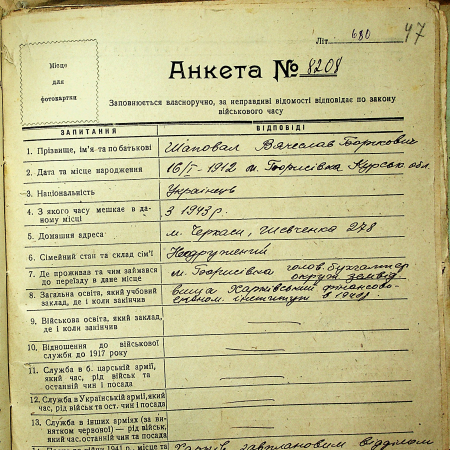 Літ. 680 47
Місце
для
фотокартки
Анкета № 8208
Заповнюється власноручно, за неправдиві відомості відповідає по закону
військового часу
ЗАПИТАННЯ ВІДПОВІДІ
1. Прізвище, ім'я та по батькові Шаповал Вячеслав
2. Дата та місце народження 16/I-1912 м. Борисівка Курськ. обл.
3. Національність Українець
4. З якого часу мешкає в да-
ному місці З 1943 р.
5. Домашня адреса м. Черкаси, Шевченка 278
6. Сімейний стан та склад сім'ї Неодружений
7. Де проживав та чим займався
до переїзду в дане місце м. Борисівка голов. бухгалтер
8. Загальна освіта, який учбовий
заклад, де і коли закінчив вища Харківський фінансово-
економ. інститут в 1940 р.
9. Військова освіта, який заклад,
де і коли закінчив
10. Відношення до військової
служби до 1917 року
11. Служба в б. царській армії,
який час, рід військ та
останній чин і посада
12. Служба в Українській армії, який
час, рід військ та ост. чин і посада
13. Служба в інших арміях (за ви-
нятком червоної) — рід військ,
який час, останній чин та посада
Харків завплановим відділом